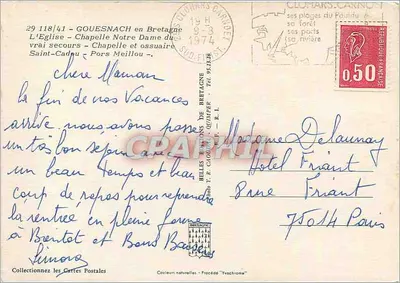 29 118/41 - GOUESNACH en Bretagne
L'Eglise - Chapelle Notre Dame du
vrai secours - Chapelle et ossuaire
Saint-Cadou - Pors Meillou -.
15 H
1974
ses plages du
sa forêt
ses ports
sa rivière
REPUBLIQUE FRANCAISE
0,50
POSTES
Chère Maman
la fin de nos Vacances
arrive. nous avons passé
un très bon séjour avec
un beau temps et beau
coup de repos pour reprendre
la rentrée en pleine forme
à Bientot et Bons Baisers
BELLES IMAGES DE BRETAGNE
CAPHI
Madame Delaunay
Hôtel Friant
8 rue Friant
75014 Paris
Collectionnez les Cartes Postales
Couleurs naturelles